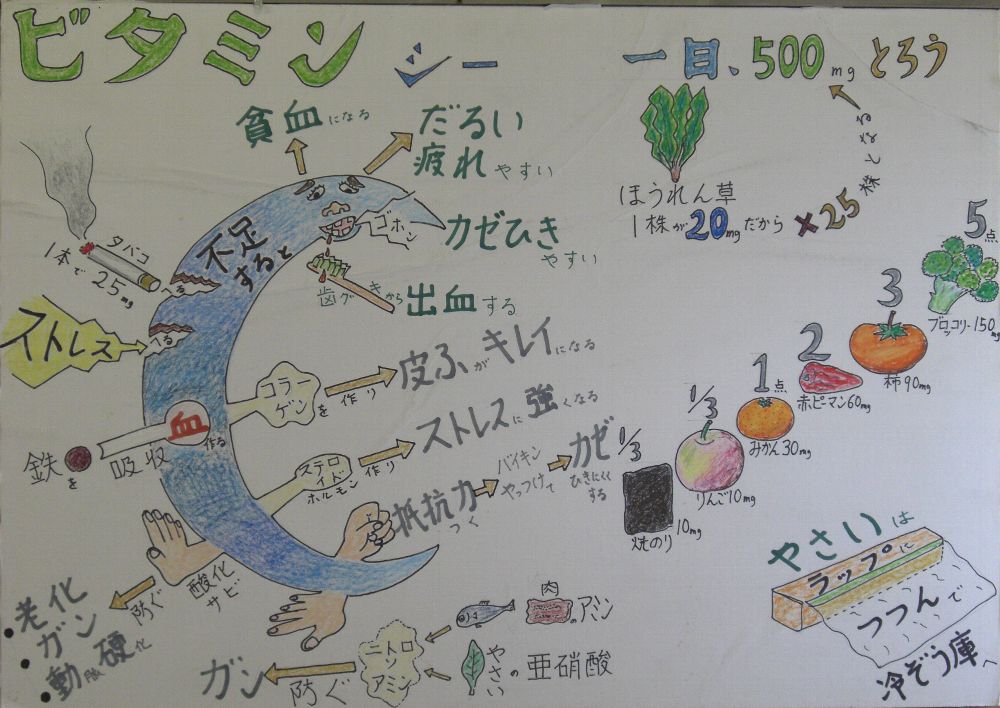 ビタミンシー
一日、500mgとろう
貧血になる
だるい
疲れやすい
ほうれん草
1株が20mgだから
×25
株となる
タバコ
1本で25mg
へる
ストレス
へる
不足
すると
ゴホン
カゼひき
やすい
歯グキから出血する
5点
ブロッコリー150mg
3
柿90mg
2
赤ピーマン60mg
1点
みかん30mg
1/3
りんご10mg
1/3
焼のり
10mg
コラーゲンを作り
皮ふがキレイになる
鉄を吸収
血
作る
ステロイド
ホルモン
作り
ストレスに強くなる
抵抗力
つく
バイキン
やっつけて
カゼ
ひきにくく
する
酸化
サビ
防ぐ
・老化
・ガン
・動脈硬化
肉のアミン
やさいの亜硝酸
ニトロソアミン
防ぐ
ガン
やさいは
ラップに
つつんで
冷ぞう庫へ